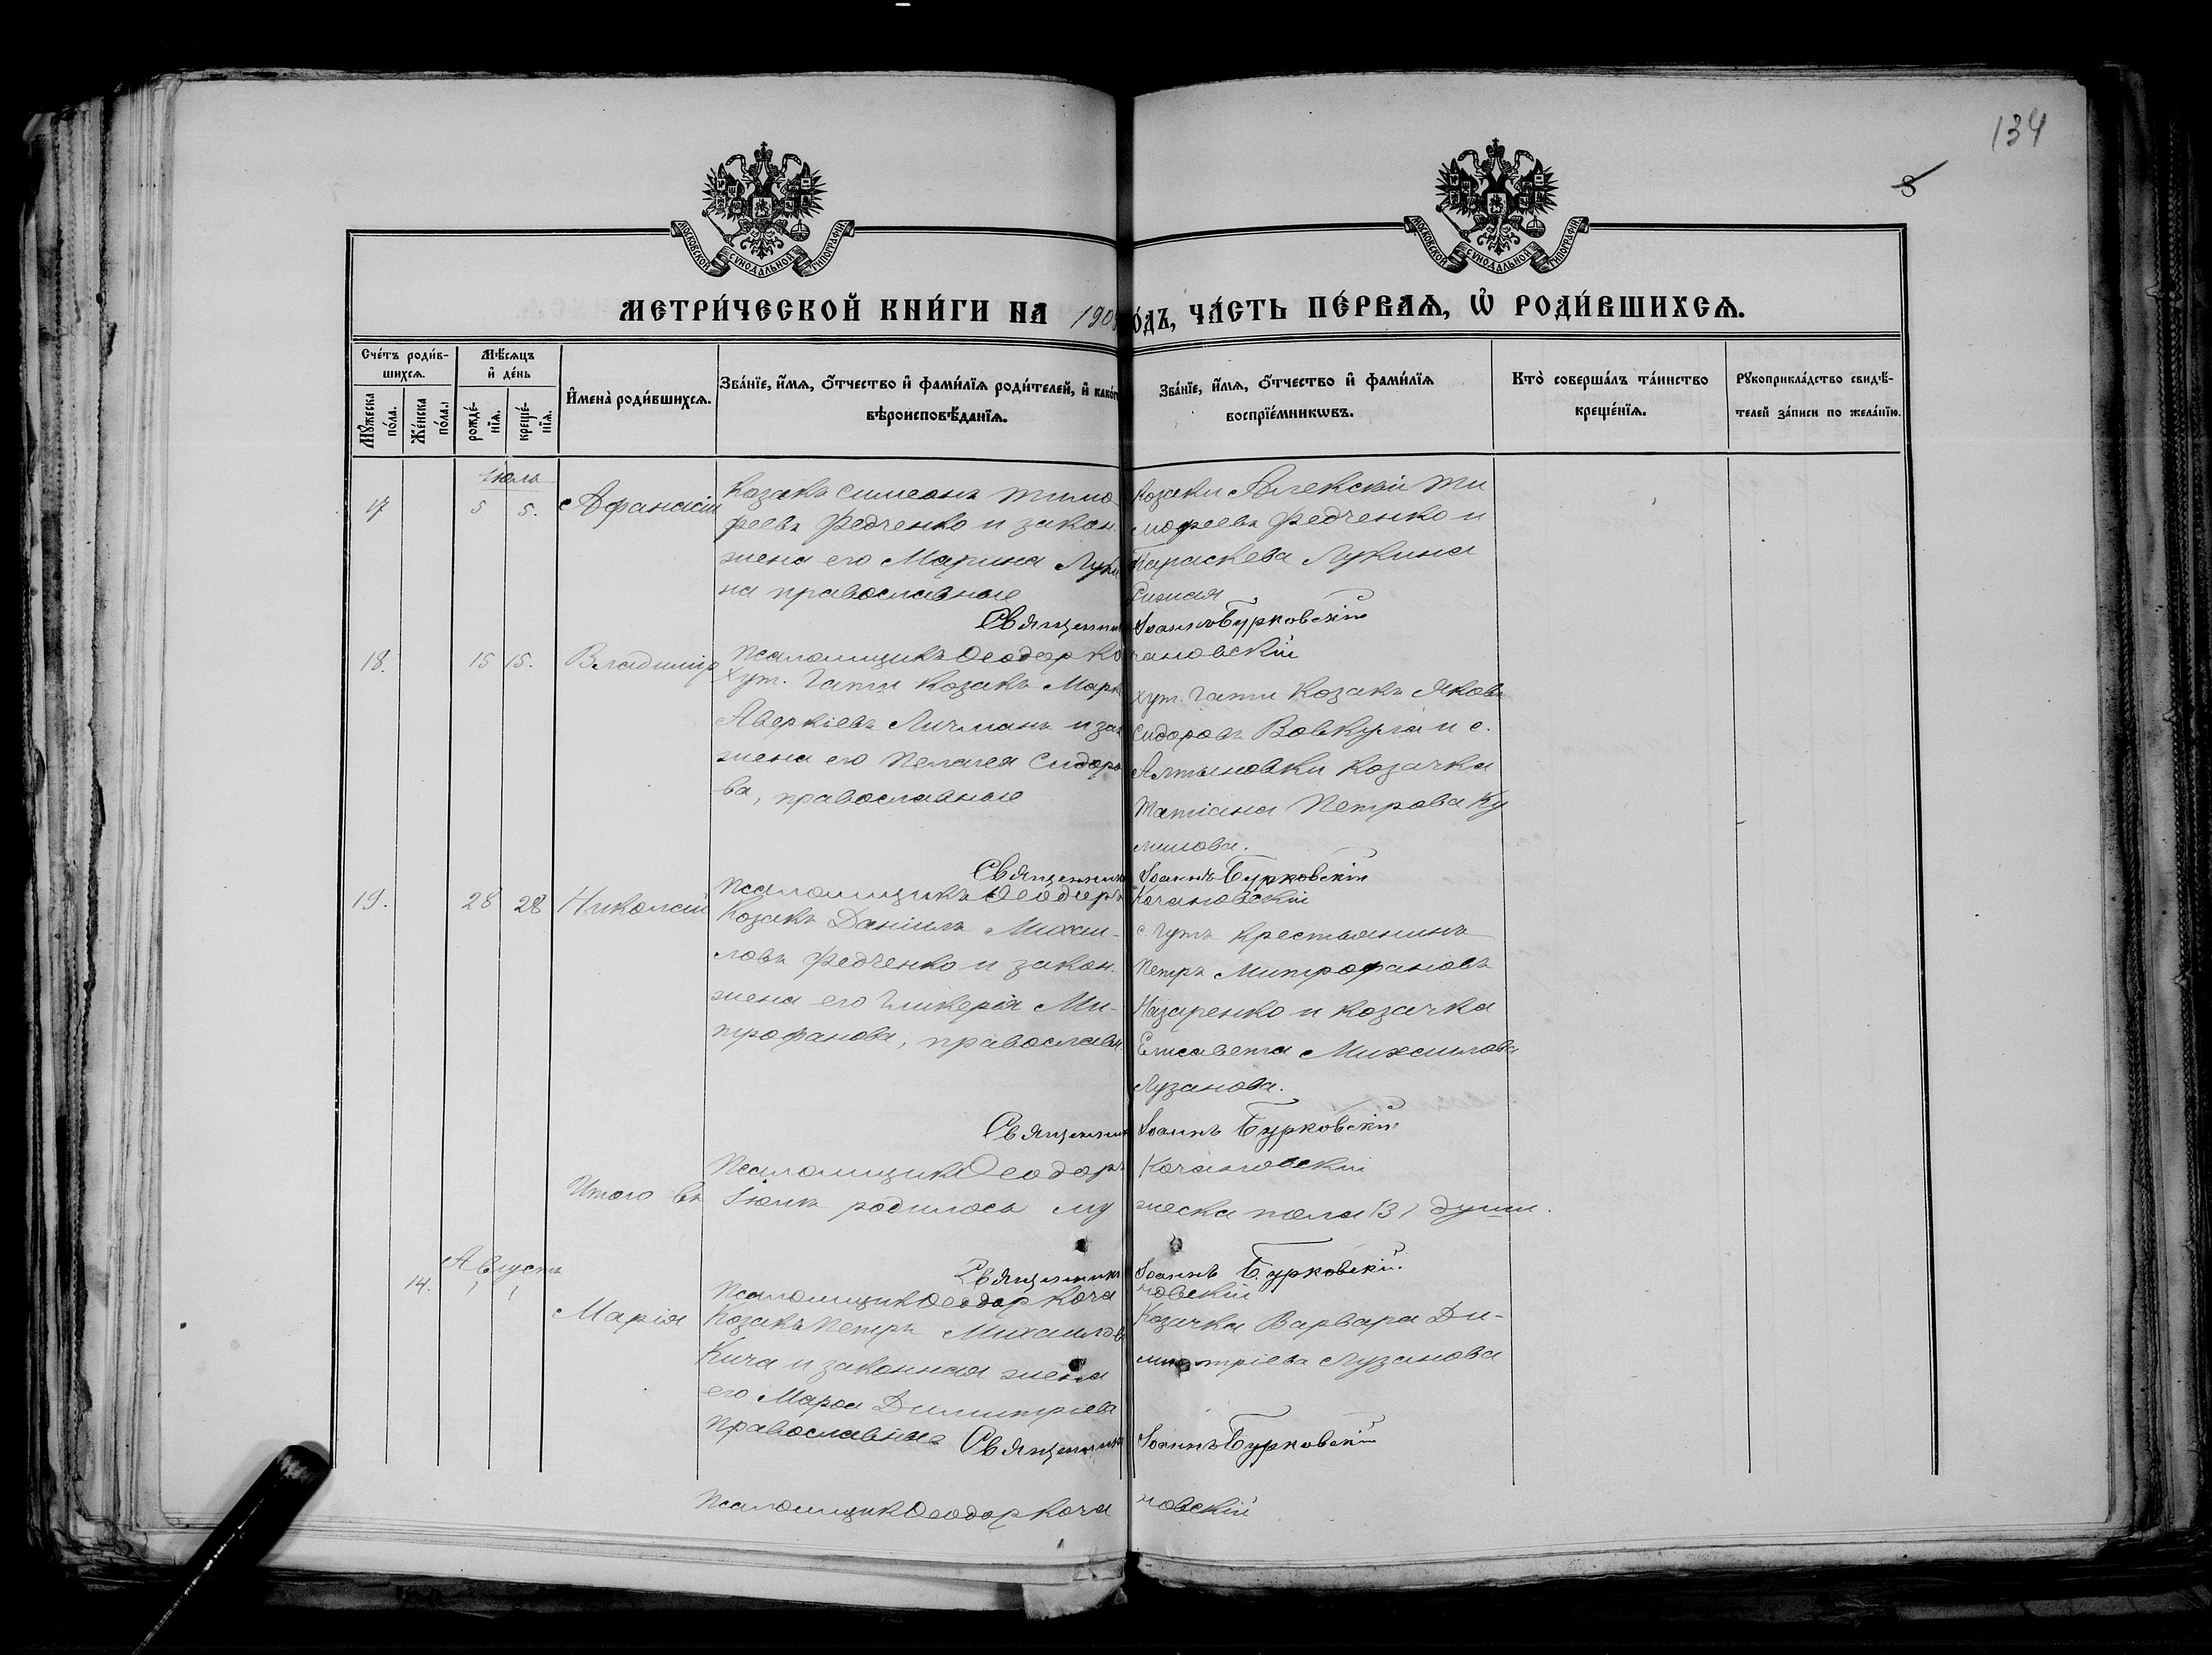 134
8
МОСКОВСКОЙ СѴНОДАЛЬНОЙ ТИПОГРАФІИ
МОСКОВСКОЙ СѴНОДАЛЬНОЙ ТИПОГРАФІИ
МЕТРИ́ЧЕСКОЙ КНИ́ГИ НА 190 О́ДЪ, ЧА́СТЬ ПЕ́РВАѦ, Ѡ҆ РОДИ́ВШИХСѦ.
Сче́тъ роди́в-
шихсѧ.
Мꙋ́жеска по́ла.
Же́нска по́ла.
Мѣ́сѧцъ
и҆ де́нь
рожде́-
нїѧ.
креще́-
нїѧ.
И҆мена̀ роди́вшихсѧ.
Зва́нїе, и҆́мѧ, ѻ҆́тчество и҆ фами́лїѧ роди́телей, и҆ како́гѡ
вѣроисповѣ́данїѧ.
Зва́нїе, и҆́мѧ, ѻ҆́тчество и҆ фами́лїѧ
воспрїе́мникѡвъ.
Кто̀ соверша́лъ та́инство
креще́нїѧ.
Рꙋкоприкла́дство свидѣ́-
телей за́писи по жела́нїю.
Іюль
17 5 5. Афанасій
Козакъ Симеонъ Тимо
феевъ Федченко и закон.
жена его Марина Луки
на православные
Козаки Алексѣй Ти
мофеевъ Федченко и
Параскева Лукина
Священникъ Іоаннъ Бурковскій
Псаломщикъ Ѳеодоръ Кочановскій
18. 15 15. Владиміръ
Хут. Гати Козакъ Маркъ
Аверкіевъ Личманъ и зак
жена его Пелагея Сидоро
ва, православные
хут. Гати Козакъ Яковъ
Сидоровъ Вовкула и с.
Алтыновки Козачка
Татіана Петрова Ку
лишова.
Священникъ Іоаннъ Бурковскій
Псаломщикъ Ѳеодоръ Кочановскій
19. 28 28 Николай
Козакъ Даніилъ Михаи-
ловъ Федченко и закон.
жена его Гликерія Ми-
трофанова, православн
с. Гутъ крестьянинъ
Петръ Митрофановъ
Назаренко и козачка
Елисавета Михаилова
Лузанова.
Священникъ Іоаннъ Бурковскій
Псаломщикъ Ѳеодоръ Кочановскій
Итого въ Іюлѣ родилось му жеска пола (3) души.
Священникъ Іоаннъ Бурковскій.
Псаломщикъ Ѳеодоръ Кочановскій
Августъ
14. 1 1 Марія
Козакъ Петръ Михаиловъ
Кича и законная жена
его Марѳа Димитріева
православные
Козачка Варвара Ди-
митріева Лузанова
Священникъ Іоаннъ Бурковскій
Псаломщикъ Ѳеодоръ Кочановскій